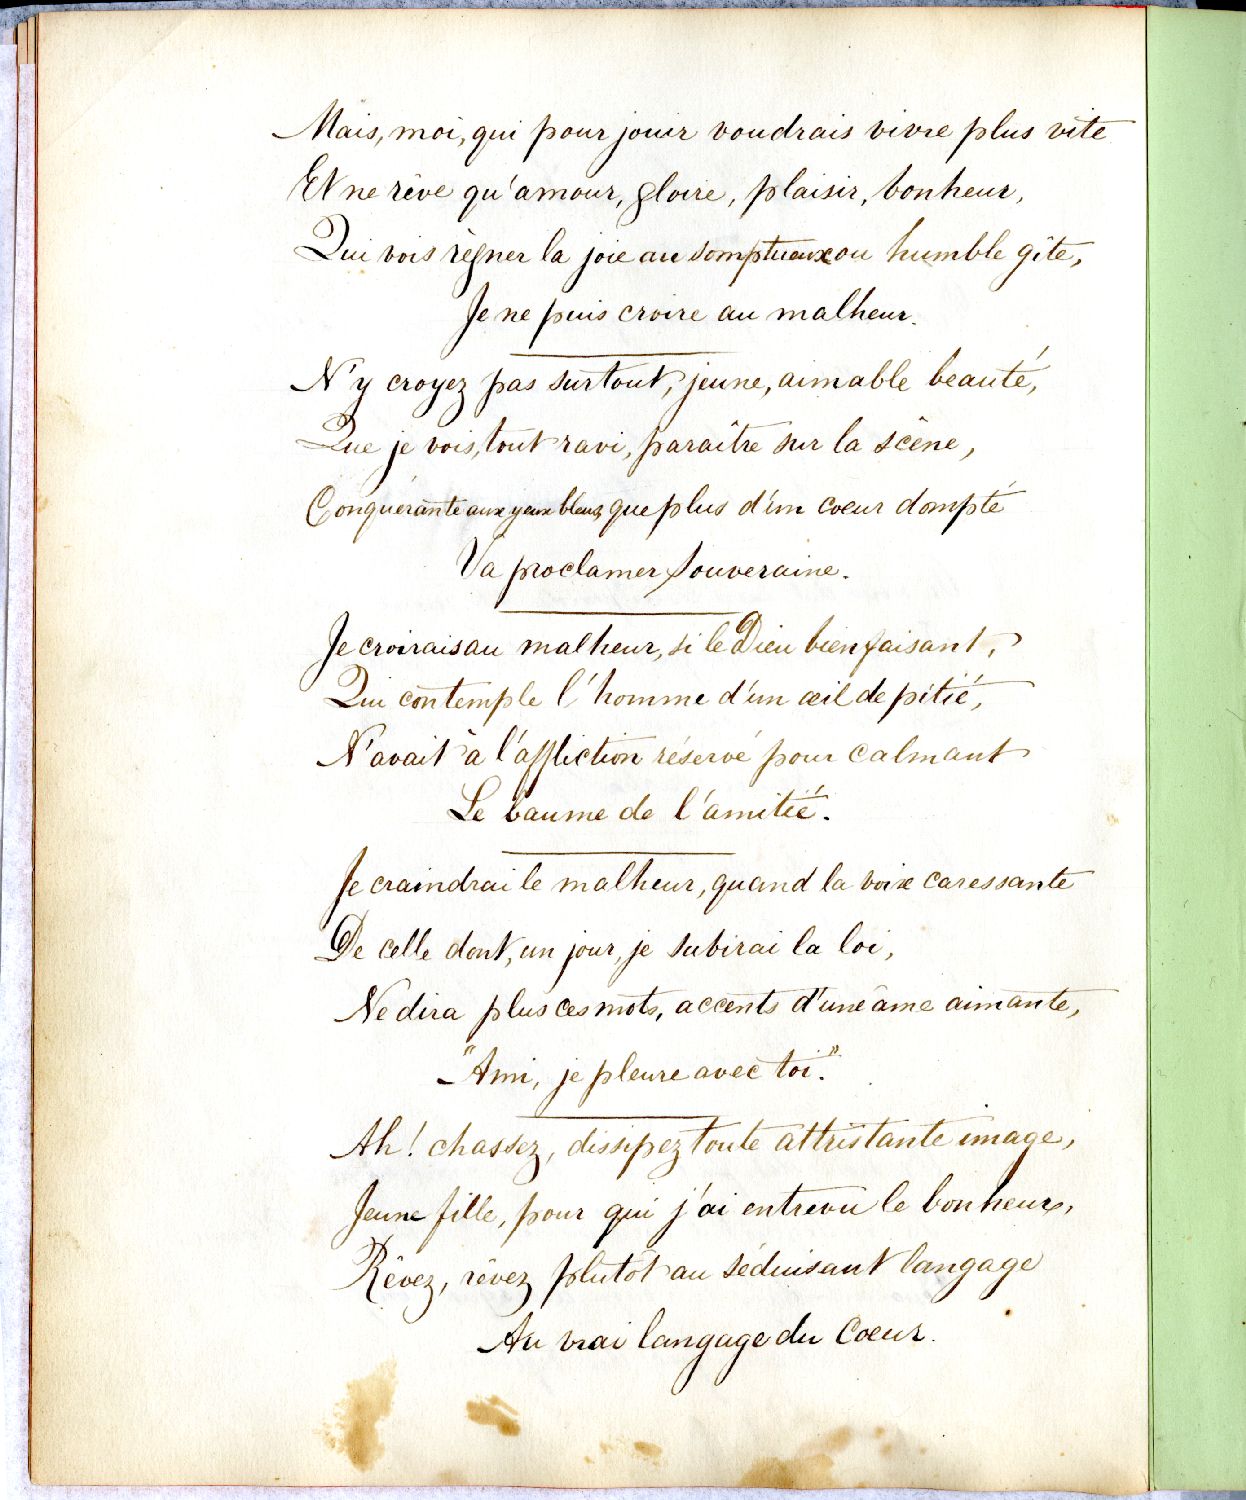 Mais, moi, qui pour jouir voudrais vivre plus vite
Et ne rêve qu'amour, gloire, plaisir, bonheur,
Qui vois règner la joie au somptueux ou humble gîte,
Je ne puis croire au malheur.
N'y croyez pas surtout, jeune, aimable beauté,
Que je vois, tout ravi, paraître sur la scène,
Conquérante aux yeux bleus, que plus d'un coeur dompté
Va proclamer souveraine.
Je croirais au malheur, si le Dieu bienfaisant,
Qui contemple l'homme d'un œil de pitié,
N'avait à l'affliction réservé pour calmant
Le baume de l'amitié.
Je craindrai le malheur, quand la voix caressante
De celle dont, un jour, je subirai la loi,
Ne dira plus ces mots, accents d'une âme aimante,
"Ami, je pleure avec toi."
Ah! chassez, dissipez toute attristante image,
Jeune fille, pour qui j'ai entrevu le bonheur,
Rêvez, rêvez plutôt au séduisant langage
Au vrai langage du Coeur.